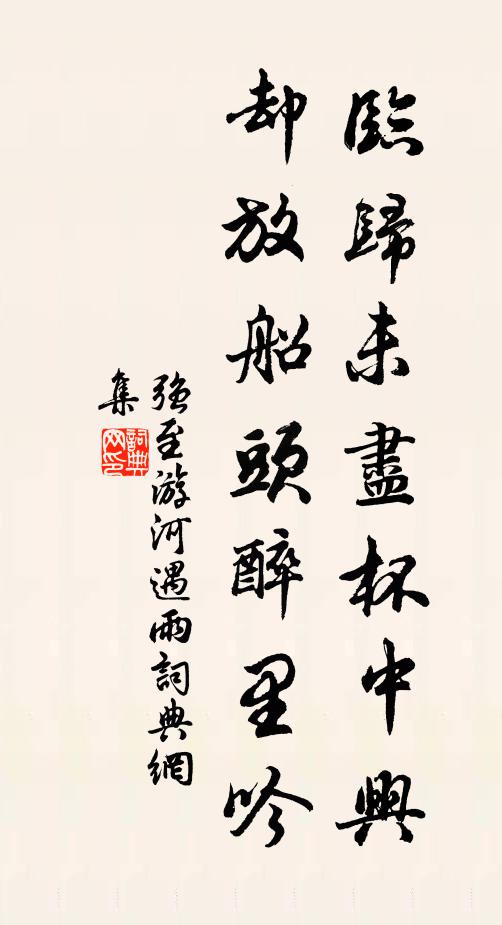 臨歸未盡杯中興
却放船頭醉里吟
強至游河遇雨詞典網
集
詞典
网印